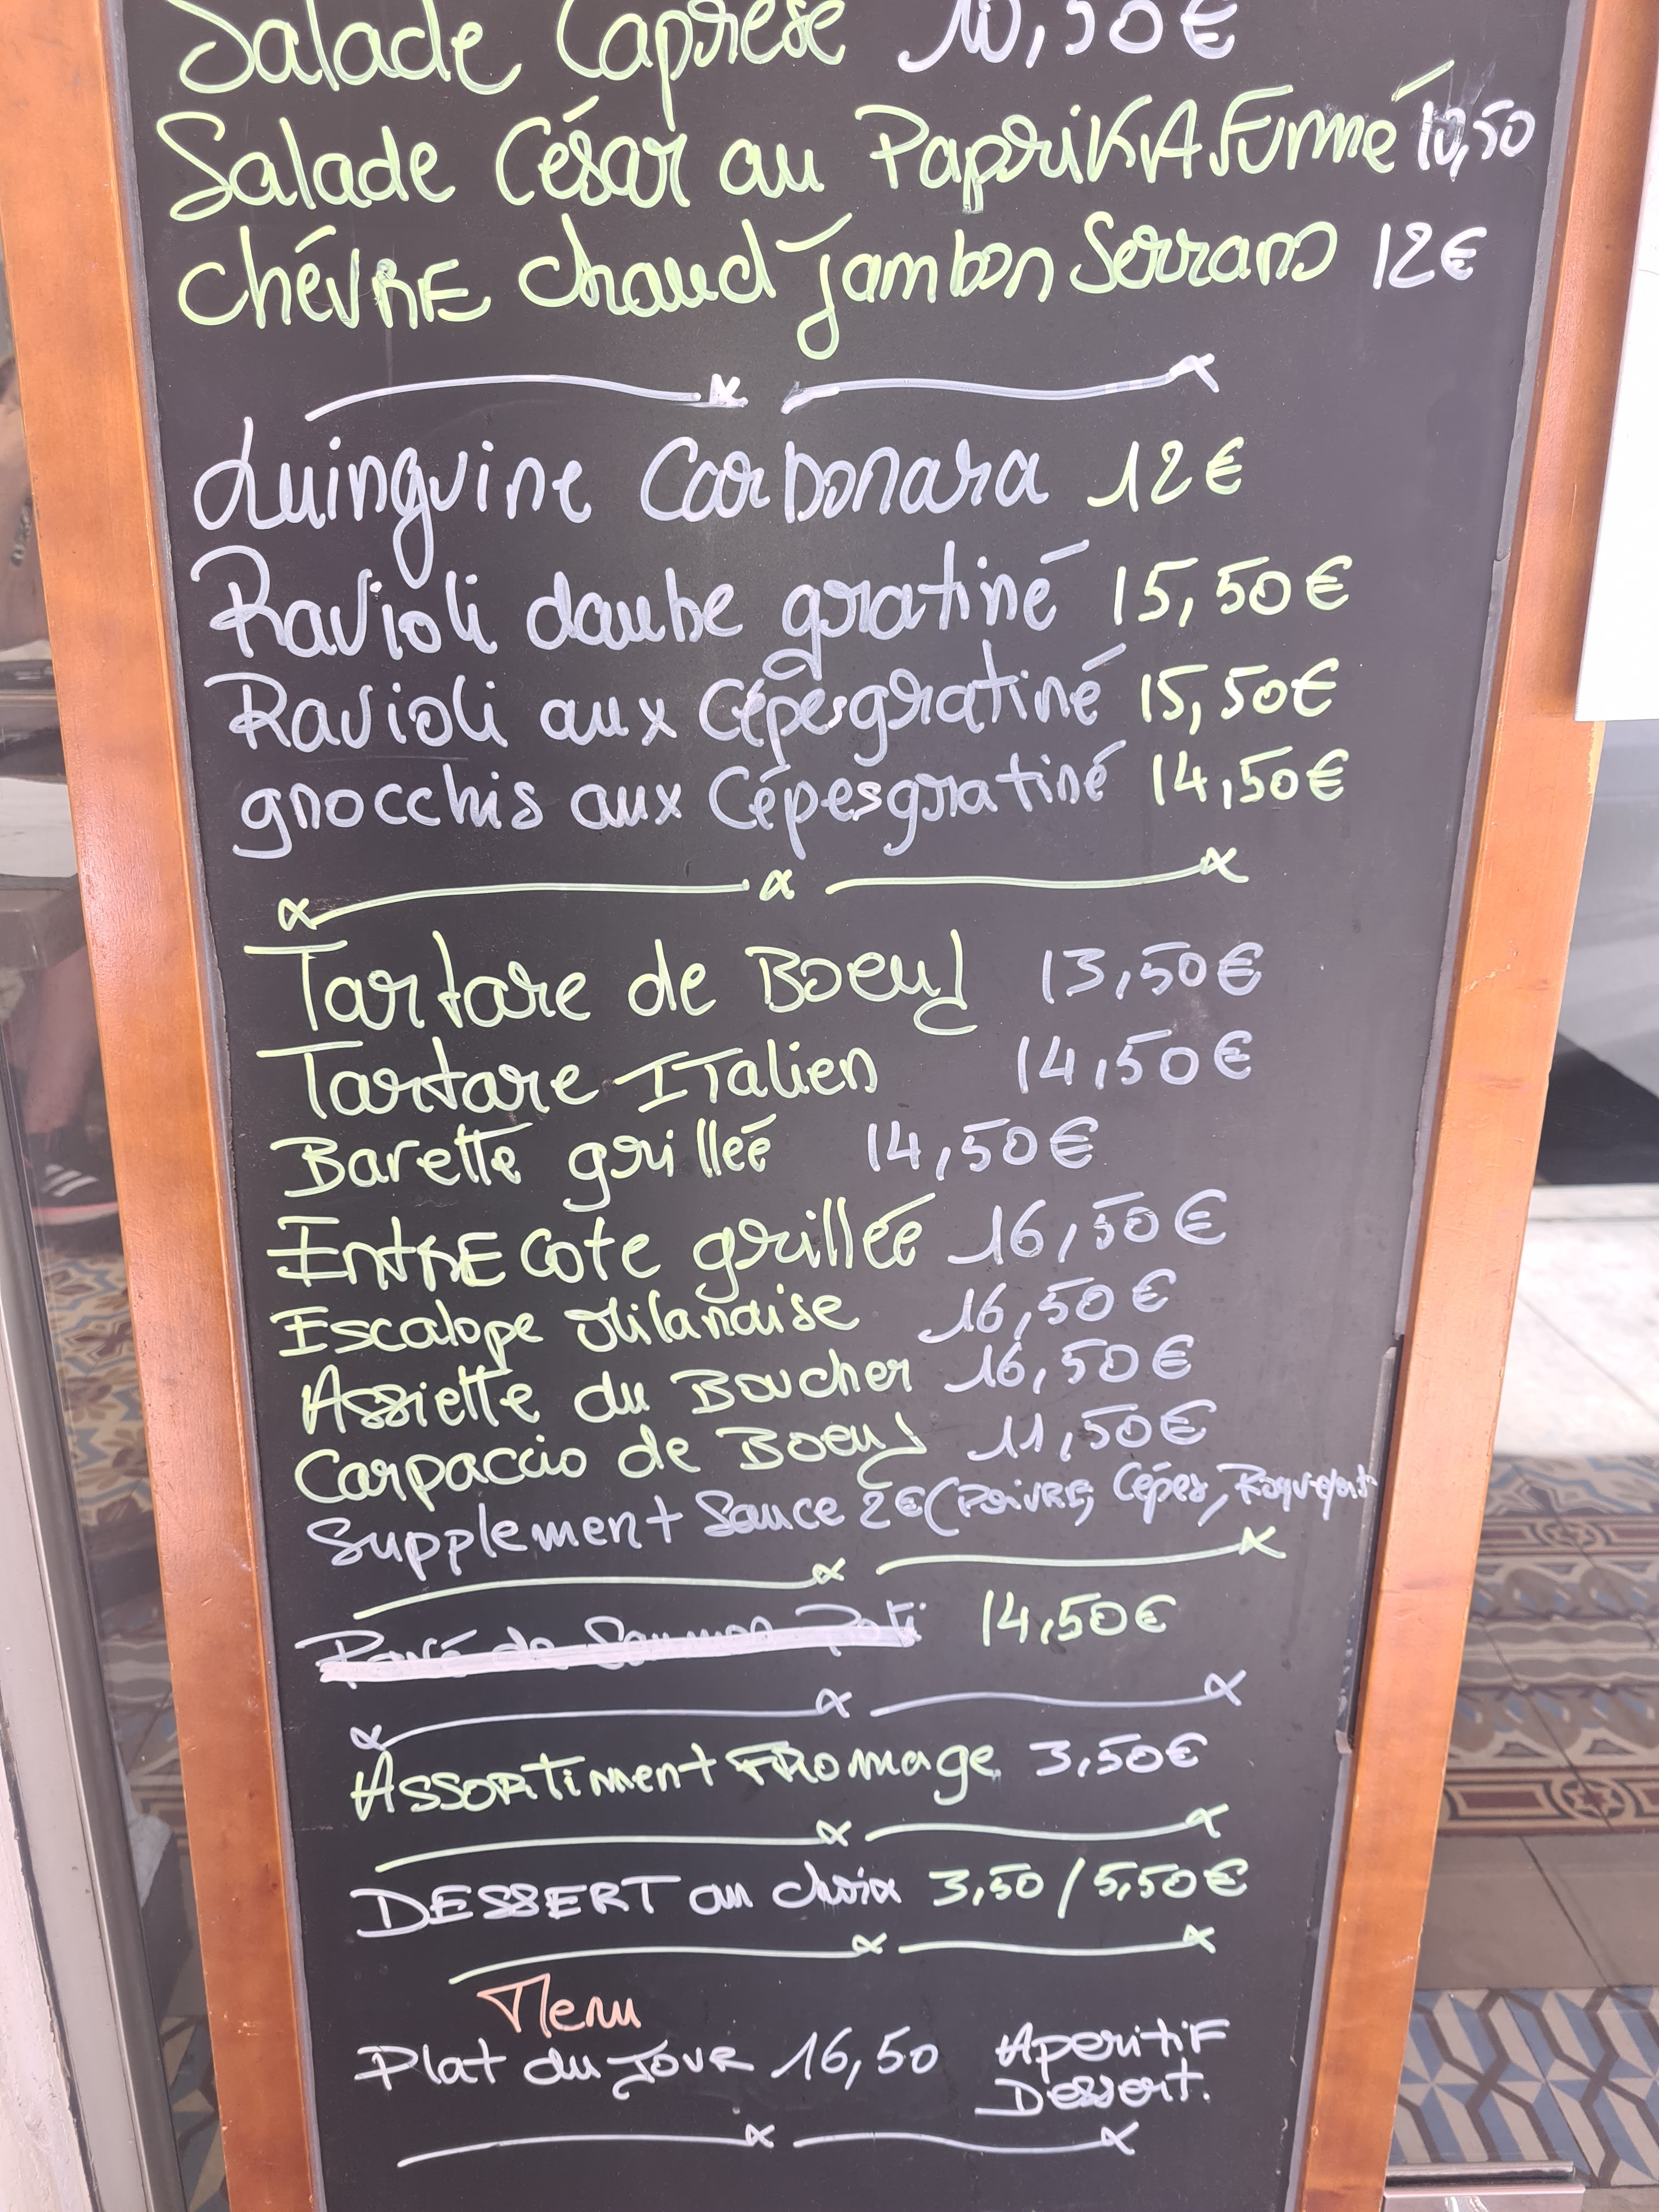 Salade Caprese 10,50€
Salade César au PapriKA Fumé 10,50
chévRE chaud jambon Serrano 12€
Luinguine Carbonara 12€
Ravioli daube gratiné 15,50€
Ravioli aux Cépes gratiné 15,50€
gnocchis aux Cépes gratiné 14,50€
Tartare de Boeuf 13,50€
Tartare ITalien 14,50€
Barette grilleé 14,50€
EntRE cote grilleé 16,50€
Escalope Milanaise 16,50€
Assiette du Boucher 16,50€
Carpaccio de Boeuf 11,50€
Supplement Sauce 2€ (PoivRE, Cépes, Roquefort
Pavé de Saumon Roti 14,50€
ASSORtiment FROmage 3,50€
DESSERT au choix 3,50/5,50€
Menu
Plat du JOUR 16,50 ApéritiF
Dessert.